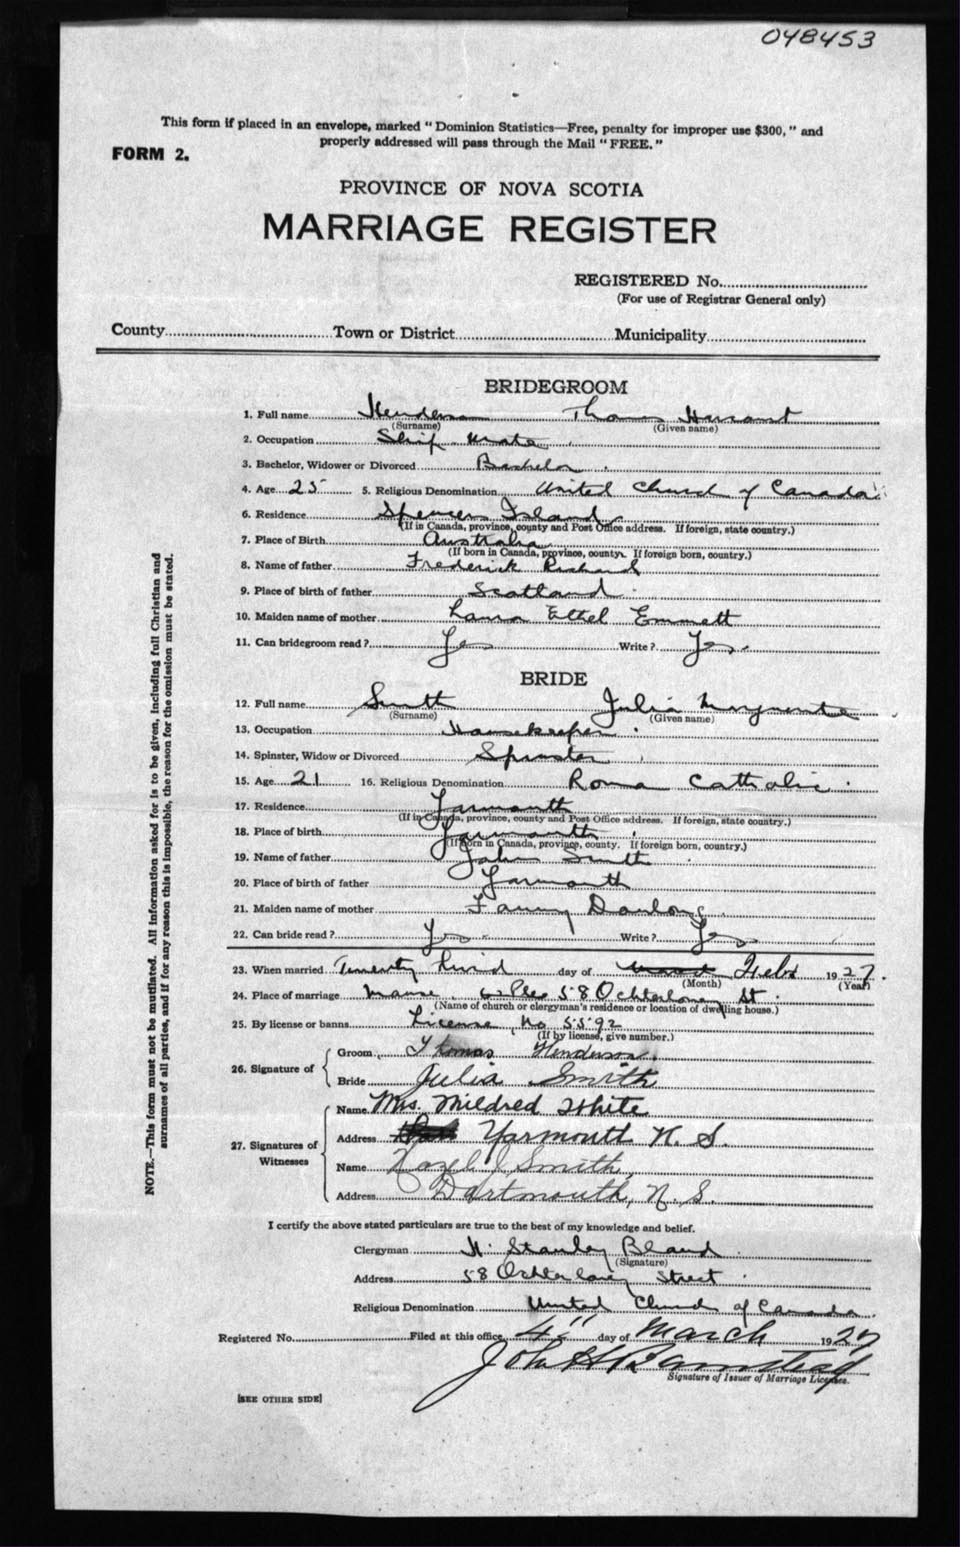 048453
This form if placed in an envelope, marked " Dominion Statistics—Free, penalty for improper use $300, " and
properly addressed will pass through the Mail " FREE. "
FORM 2.
PROVINCE OF NOVA SCOTIA
MARRIAGE REGISTER
REGISTERED No.
(For use of Registrar General only)
County Town or District Municipality
BRIDEGROOM
1. Full name Henderson Thomas
(Surname) (Given name)
2. Occupation Ship Mate
3. Bachelor, Widower or Divorced Bachelor
4. Age 25 5. Religious Denomination United Church of Canada
6. Residence Spencers Island
(If in Canada, province, county and Post Office address. If foreign, state country.)
7. Place of Birth Australia
(If born in Canada, province, county. If foreign born, country.)
8. Name of father Frederick Richard
9. Place of birth of father Scotland
10. Maiden name of mother Laura Ethel Emmett
11. Can bridegroom read? Yes Write? Yes
BRIDE
12. Full name Smith Julia
(Surname) (Given name)
13. Occupation Housekeeper
14. Spinster, Widow or Divorced Spinster
15. Age 21 16. Religious Denomination Roma Catholic
17. Residence Yarmouth
(If in Canada, province, county and Post Office address. If foreign, state country.)
18. Place of birth Yarmouth
(If born in Canada, province, county. If foreign born, country.)
19. Name of father John Smith
20. Place of birth of father Yarmouth
21. Maiden name of mother Fanny
22. Can bride read? Yes Write? Yes
23. When married Twenty third day of Feby 1927.
(Month) (Year)
24. Place of marriage Manse 58 Ochterloney St.
(Name of church or clergyman's residence or location of dwelling house.)
25. By license or banns License No 5592
(If by license, give number.)
26. Signature of
Groom Thomas Henderson.
Bride Julia Smith
27. Signatures of Witnesses
Name Mrs. Mildred White
Address Yarmouth N. S.
Name Hazel J Smith
Address Dartmouth, N. S.
I certify the above stated particulars are true to the best of my knowledge and belief.
Clergyman H. Stanley Bland
(Signature)
Address 58 Ochterloney Street
Religious Denomination United Church of Canada
Registered No. Filed at this office 4" day of March 1927
John H Bamstead
Signature of Issuer of Marriage Licenses.
[SEE OTHER SIDE]
NOTE.—This form must not be mutilated. All information asked for is to be given, including full Christian and
surnames of all parties, and if for any reason this is impossible, the reason for the omission must be stated.